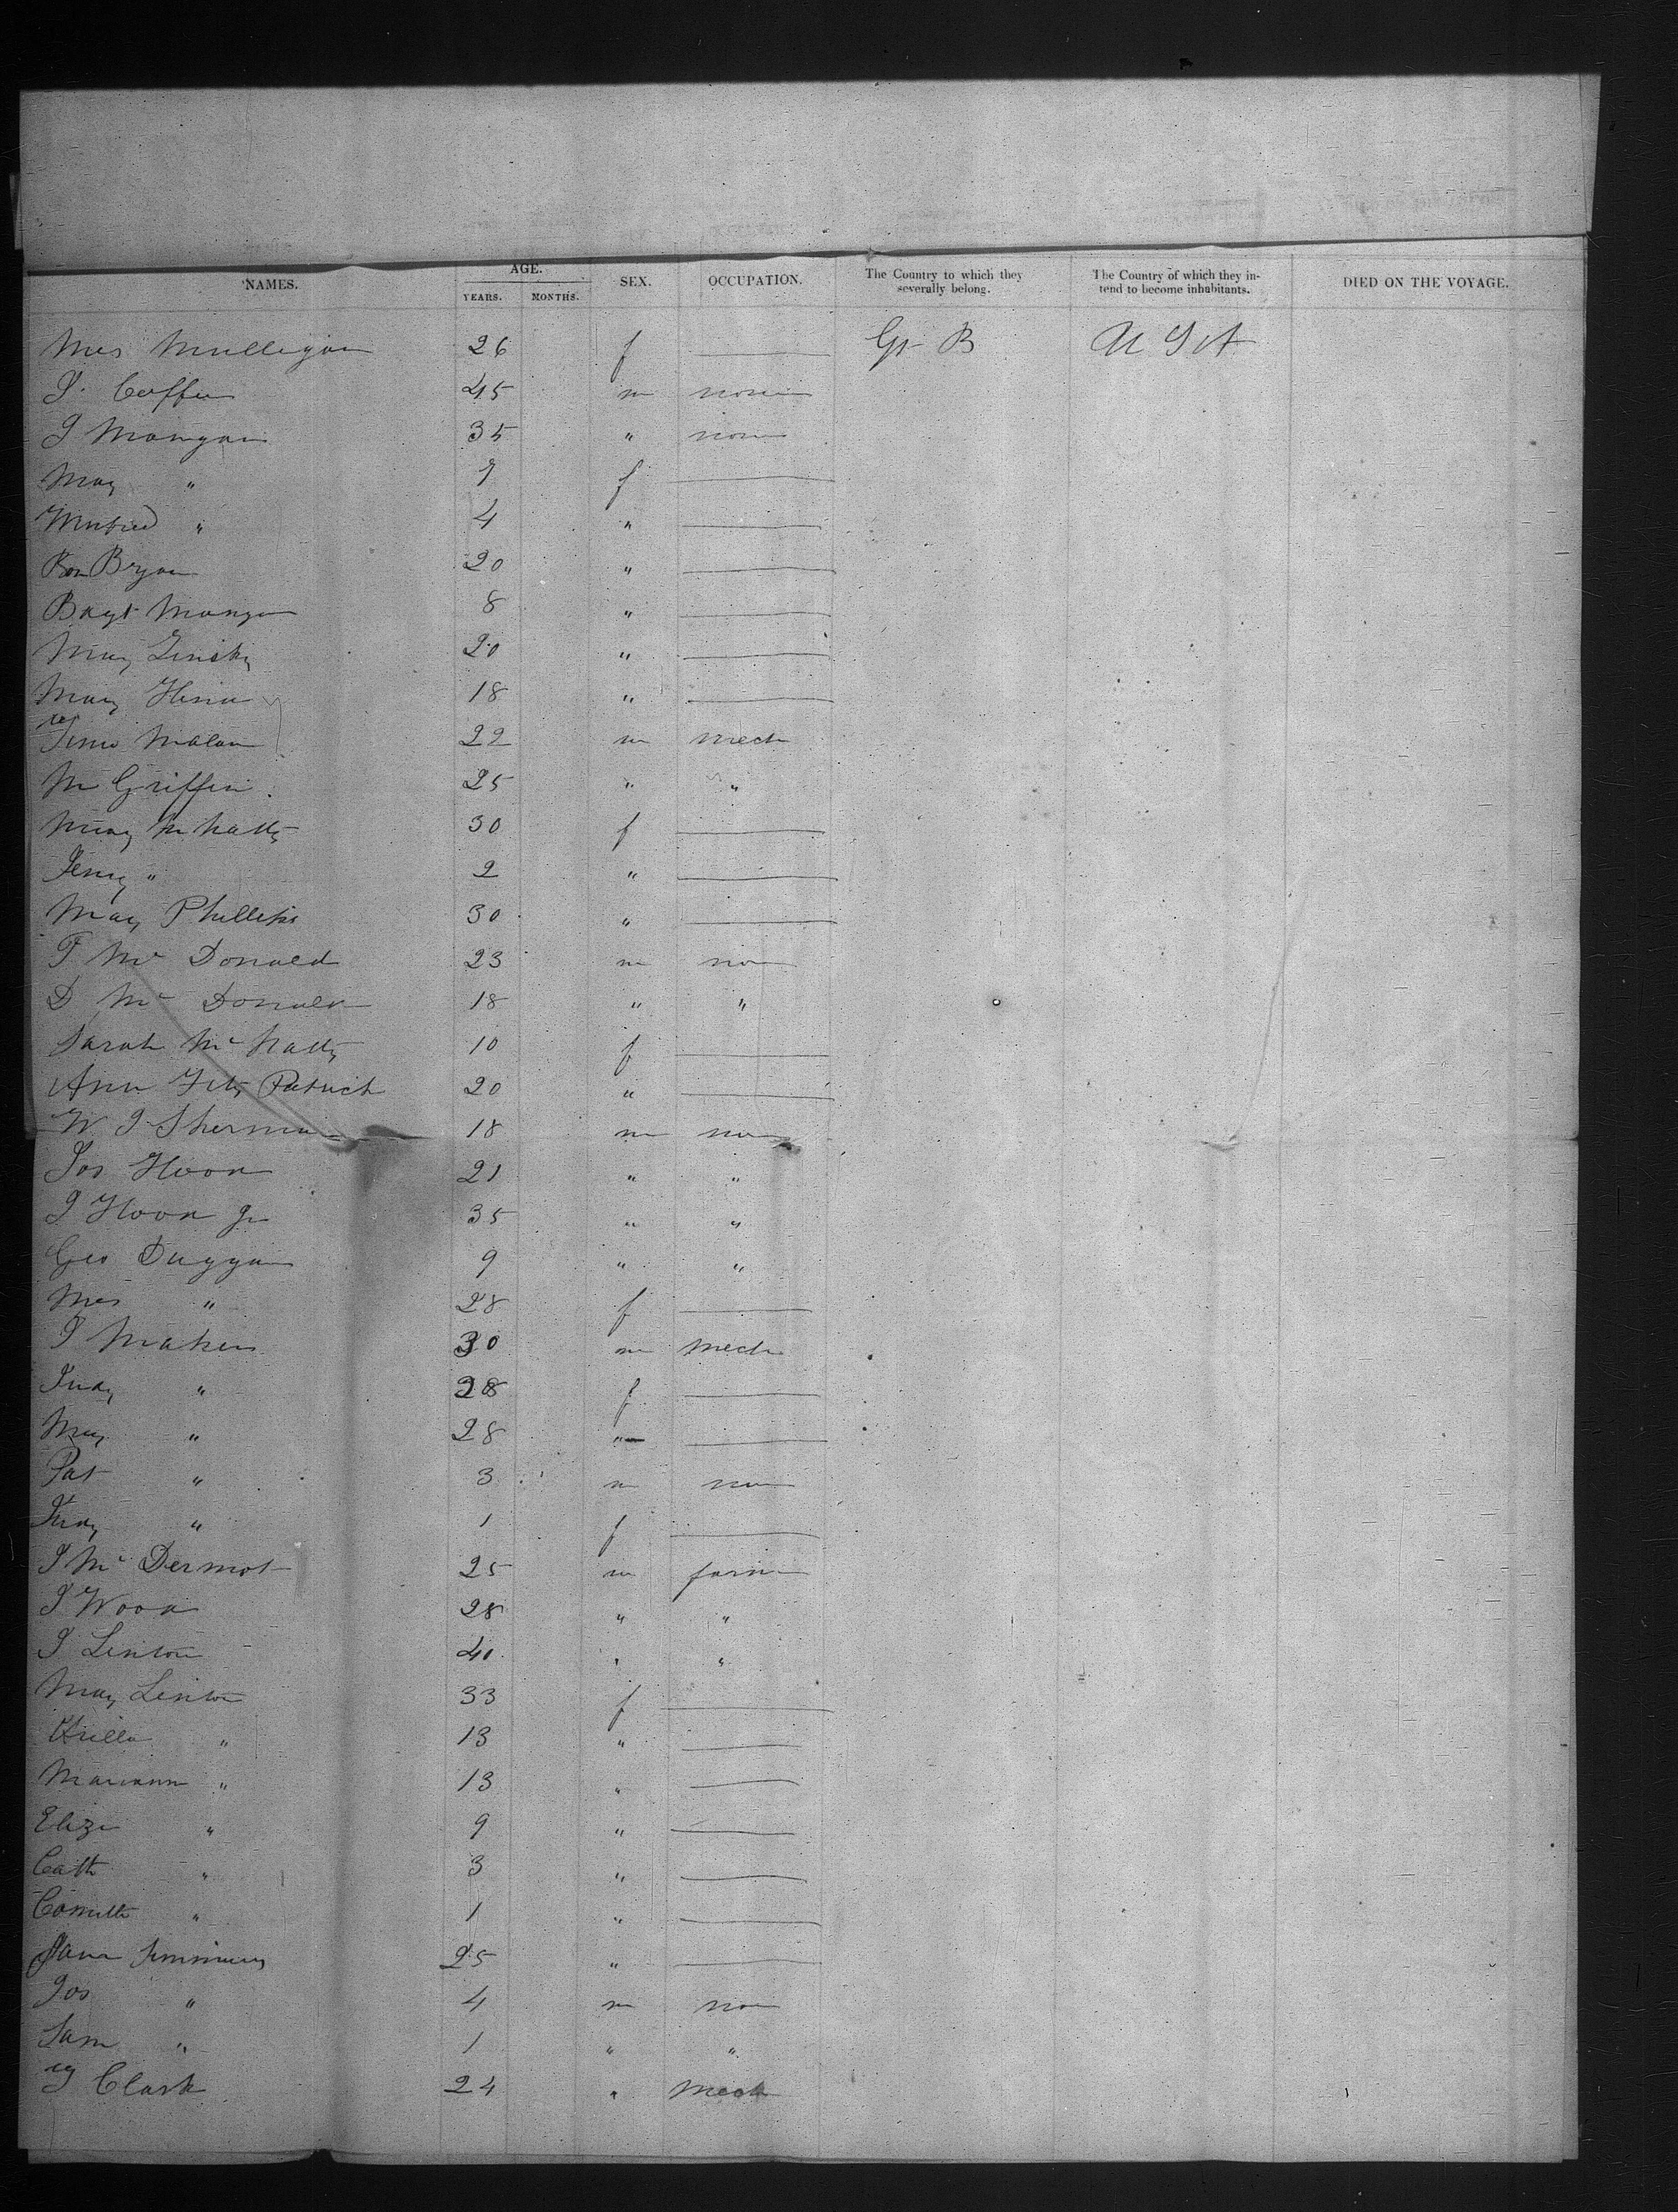 NAMES. AGE. SEX. OCCUPATION. The Country to which they severally belong. The Country of which they intend to become inhabitants. DIED ON THE VOYAGE.
YEARS. MONTHS.
Mrs Mulligan 26 f Gr B U S A
45 m none
Mangan 35 " none
Mary " 7 f
Winfred " 4 "
Bryan 20 "
Bagt Mangan 8 "
Mary 20 "
Mary 18 "
22 m mech
M Griffin 25 " "
Mary McNally 30 f
" 2 "
Mary Phillips 30 "
T Mc Donald 23 m non
D Mc Donald 18 " "
Sarah McNally 10 f
Ann Fitz Patrick 20 "
W J Sherman 18 m non
Jos 21 " "
Jr 35 " "
Geo Duggan 9 " "
Mrs " 28 f
J Maher 30 m mech
Judy " 28 f
Mary " 28 "
Pat " 3 m non
Judy " 1 f
J Mc Dermot 25 m farm
J Wood 28 " "
J Linton 40 " "
Mary Linton 33 f
" 13 "
Mariann " 13 "
Eliza " 9 "
Cath " 3 "
" 1 "
Jane Simmons 25 "
Jos " 4 m non
Sam " 1 " "
Clark 24 " mech